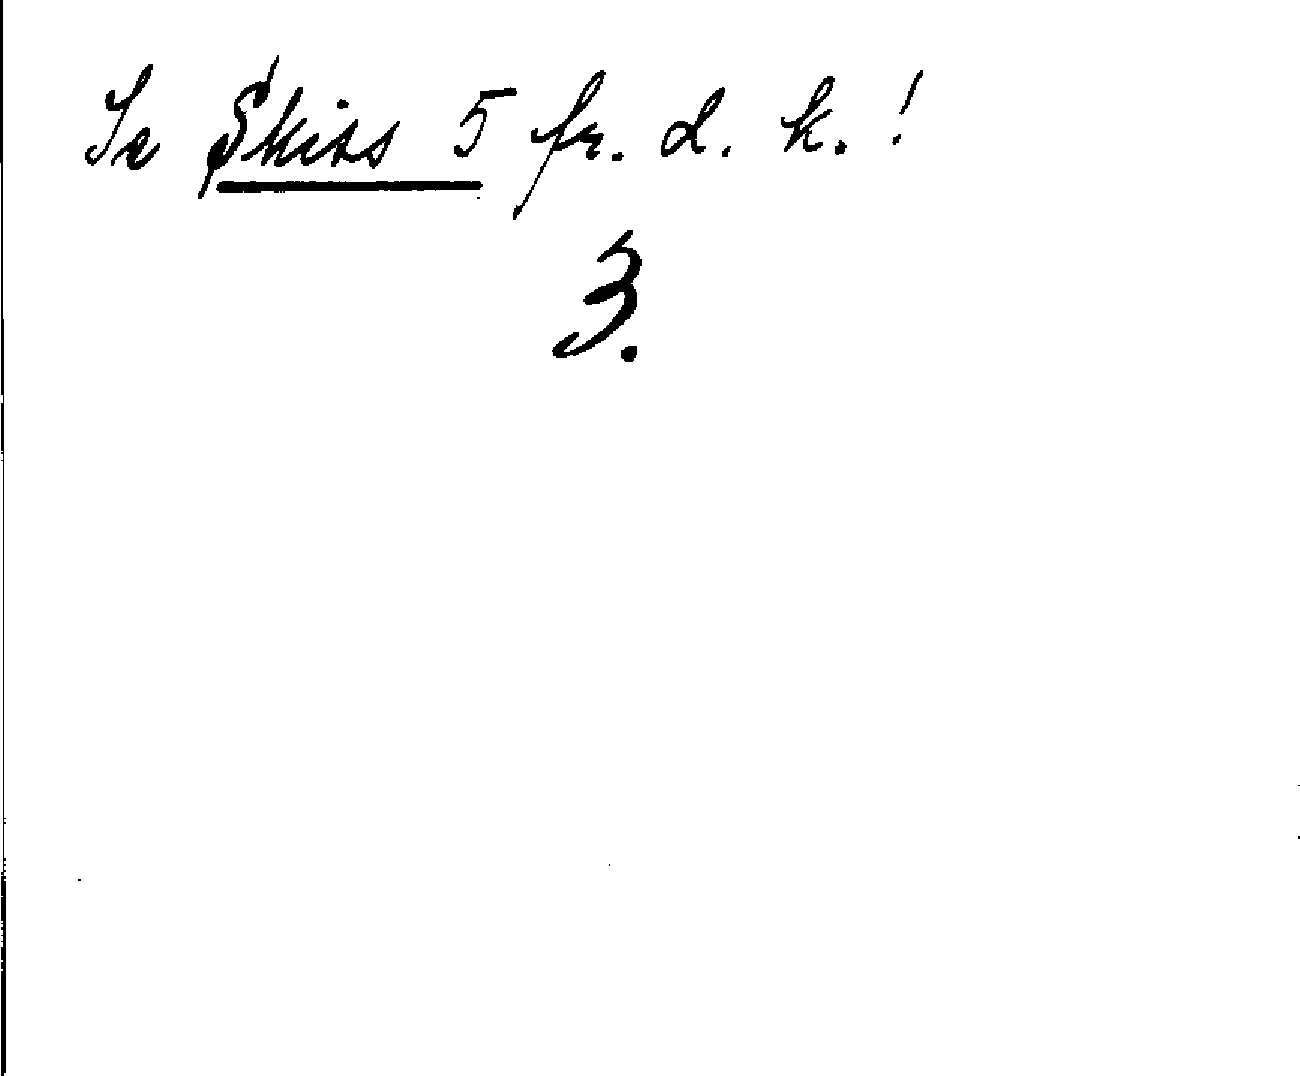 Se Skiss 5 fr. d. k.!
3.